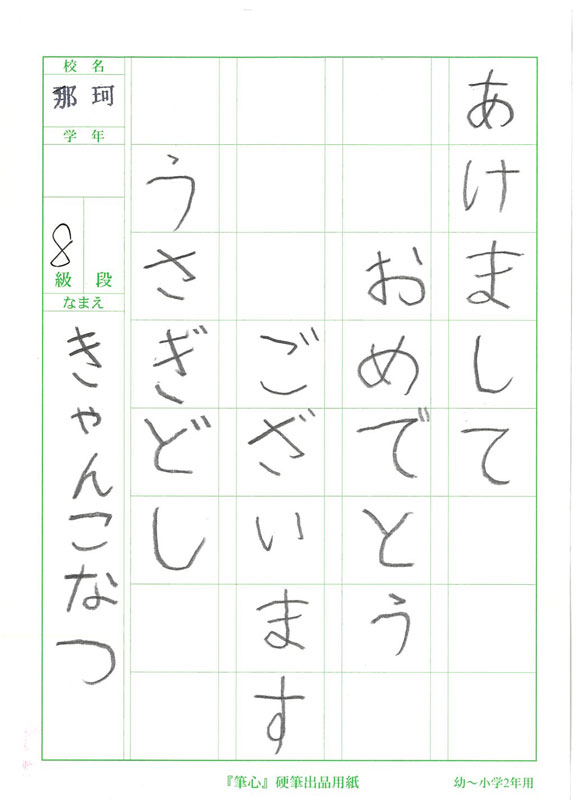 あけまして
おめでとう
ございます
うさぎどし
校名
那珂
学年
段
8級
なまえ
きゃんこなつ
『筆心』硬筆出品用紙
幼～小学2年用